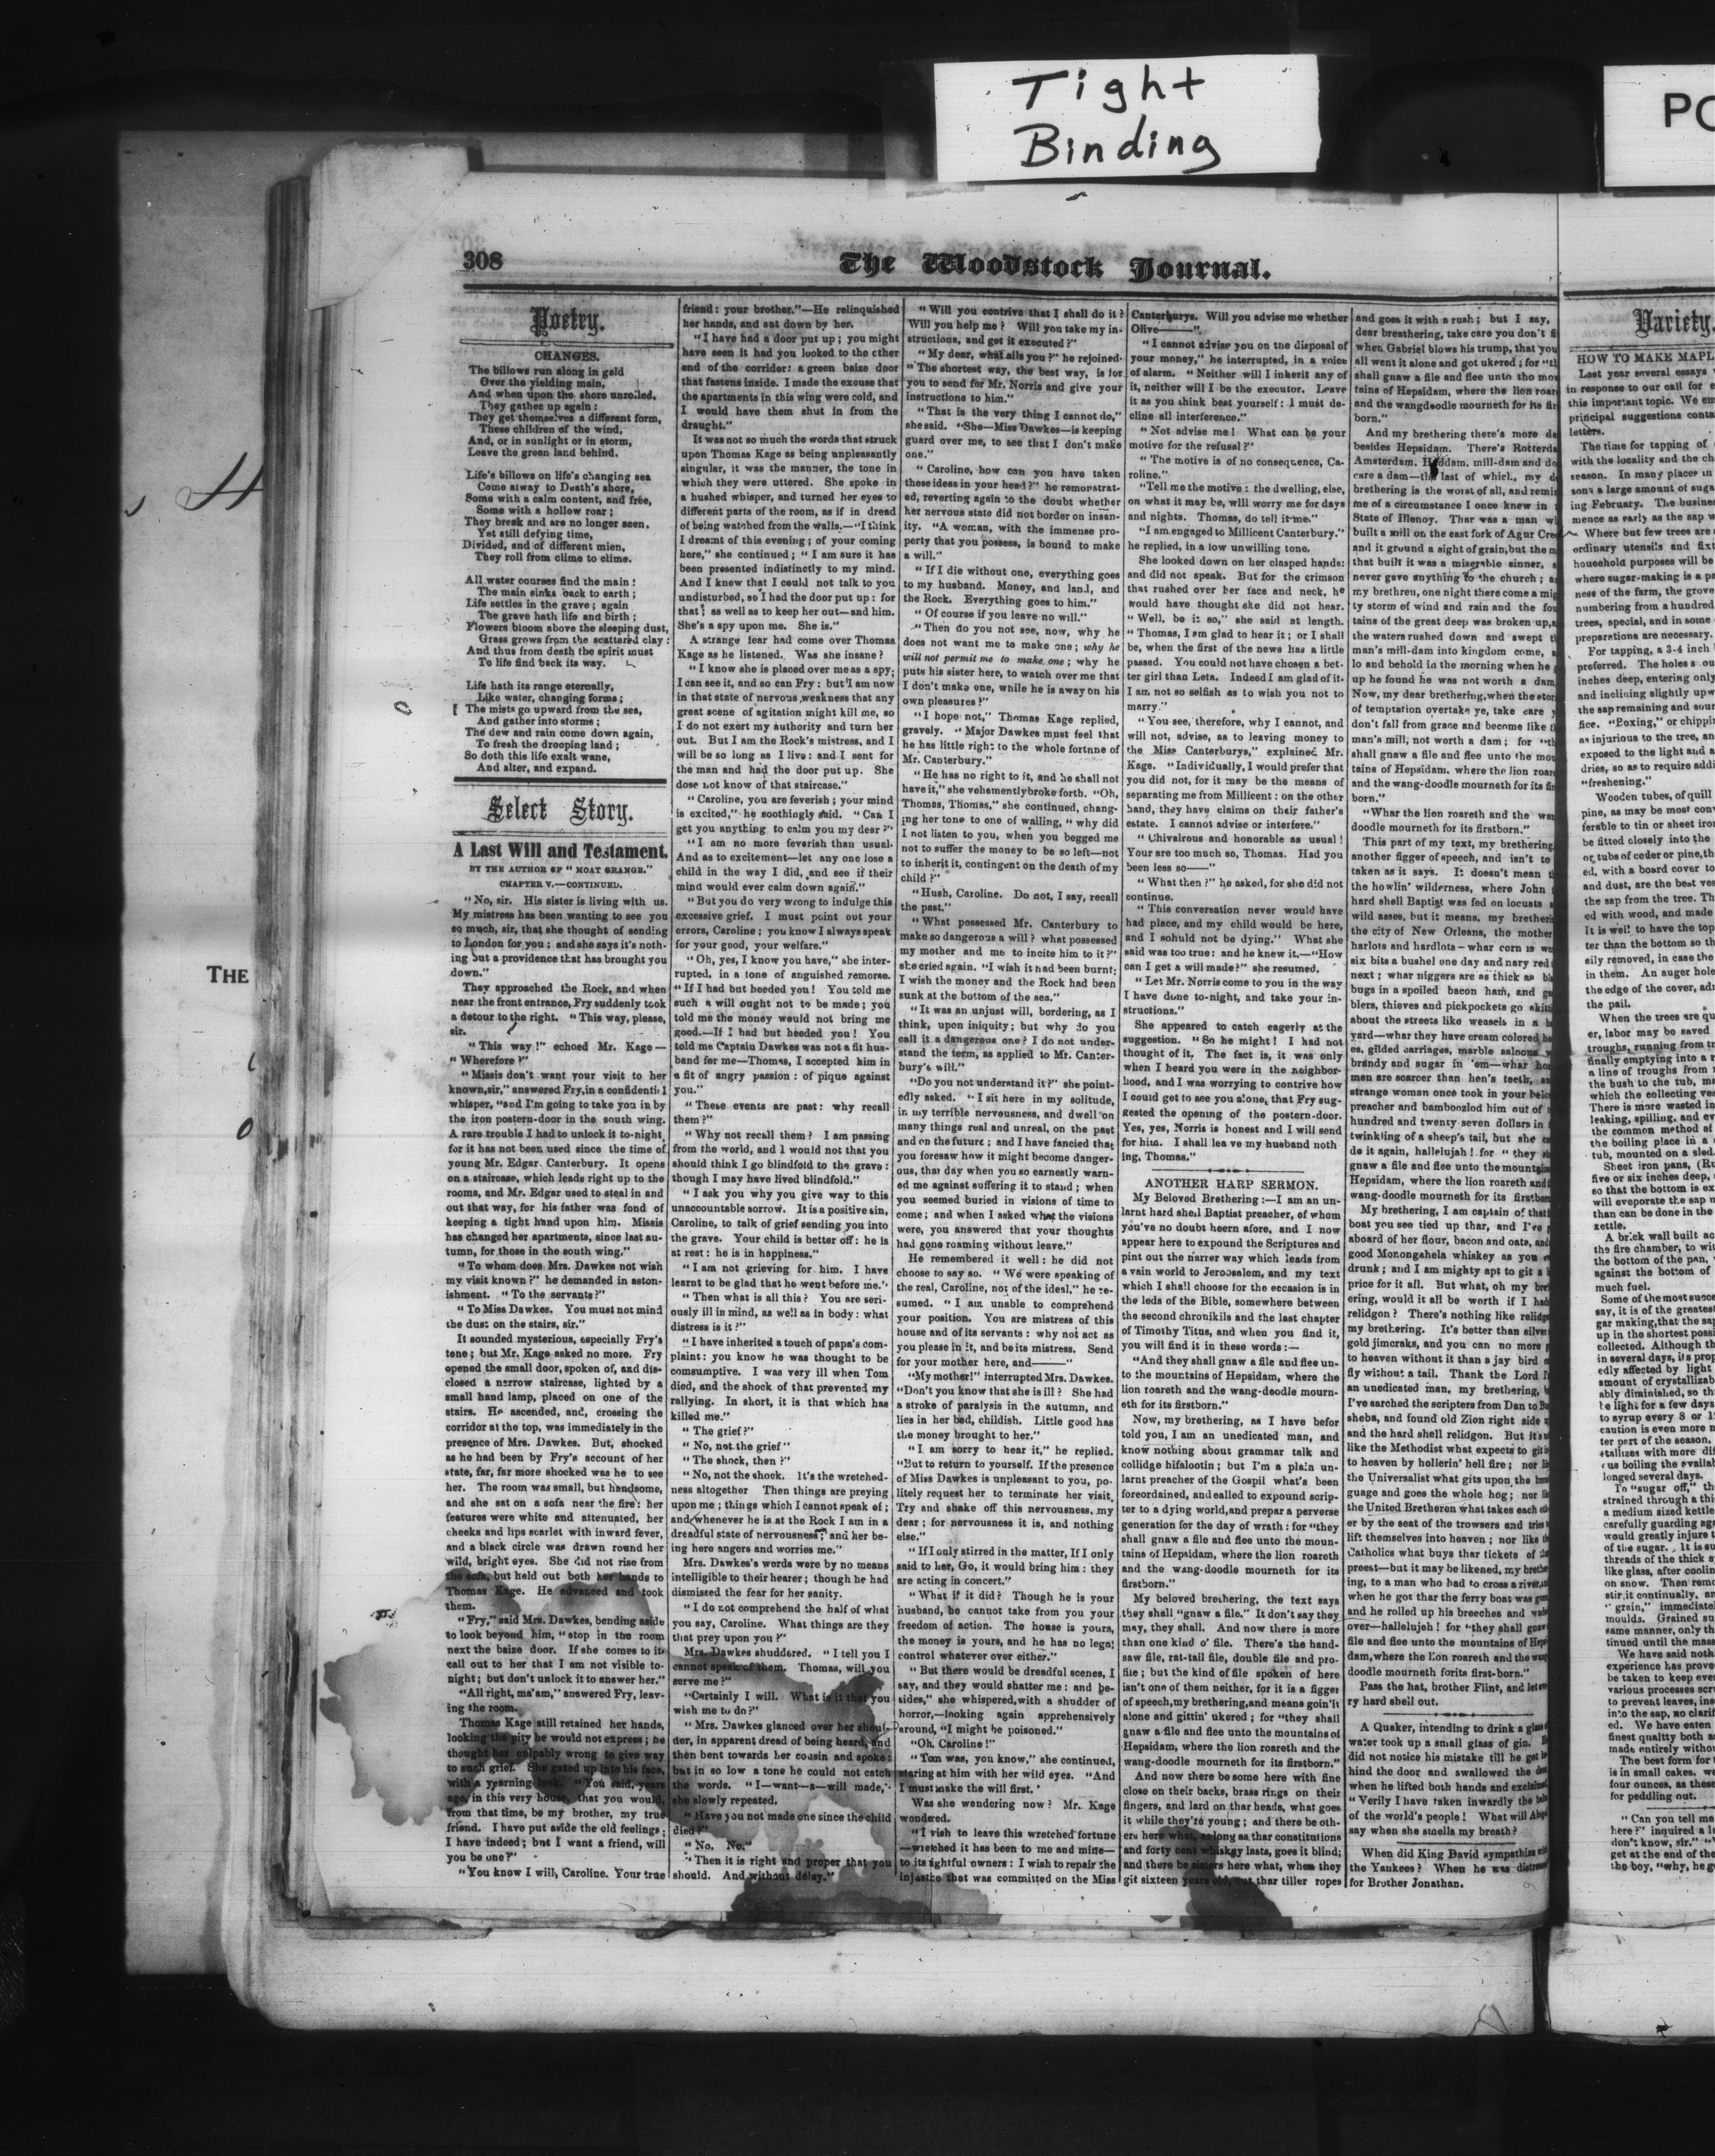 Tight
Binding
PO
THE
308
The Woodstock Journal.
Poetry.
CHANGES.
The billows run along in gold
Over the yielding main,
And when upon the shore unrolled,
They gather up again:
They get themselves a different form,
These children of the wind,
And, or in sunlight or in storm,
Leave the green land behind.
Life's billows on life's changing sea
Come alway to Death's shore,
Some with a calm content, and free,
Some with a hollow roar;
They break and are no longer seen,
Yet still defying time,
Divided, and of different mien,
They roll from clime to clime.
All water courses find the main;
The main sinks back to earth;
Life settles in the grave; again
The grave hath life and birth;
Flowers bloom above the sleeping dust,
Grass grows from the scattered clay:
And thus from death the spirit must
To life find back its way.
Life hath its range eternally,
Like water, changing forms;
The mists go upward from the sea,
And gather into storms;
The dew and rain come down again,
To fresh the drooping land;
So doth this life exalt wane,
And alter, and expand.
Select Story.
A Last Will and Testament.
BY THE AUTHOR OF "MOAT GRANGE."
CHAPTER V.—CONTINUED.
"No, sir. His sister is living with us.
My mistress has been wanting to see you
so much, sir, that she thought of sending
to London for you; and she says it's noth-
ing but a providence that has brought you
down."
They approached the Rock, and when
near the front entrance, Fry suddenly took
a detour to the right. "This way, please,
sir.
"This way!" echoed Mr. Kage—
"Wherefore?"
"Missis don't want your visit to her
known, sir," answered Fry, in a confidential
whisper, "and I'm going to take you in by
the iron postern-door in the south wing.
A rare trouble I had to unlock it to-night,
for it has not been used since the time of
young Mr. Edgar Canterbury. It opens
on a staircase, which leads right up to the
rooms, and Mr. Edgar used to steal in and
out that way, for his father was fond of
keeping a tight hand upon him. Missis
has changed her apartments, since last au-
tumn, for those in the south wing."
"To whom does Mrs. Dawkes not wish
my visit known?" he demanded in aston-
ishment. "To the servants?"
"To Miss Dawkes. You must not mind
the dust on the stairs, sir."
It sounded mysterious, especially Fry's
tone; but Mr. Kage asked no more. Fry
opened the small door, spoken of, and dis-
closed a narrow staircase, lighted by a
small hand lamp, placed on one of the
stairs. He ascended, and, crossing the
corridor at the top, was immediately in the
presence of Mrs. Dawkes. But, shocked
as he had been by Fry's account of her
state, far, far more shocked was he to see
her. The room was small, but handsome,
and she sat on a sofa near the fire: her
features were white and attenuated, her
cheeks and lips scarlet with inward fever,
and a black circle was drawn round her
wild, bright eyes. She did not rise from
the sofa, but held out both her hands to
Thomas Kage. He advanced and took
them.
"Fry," said Mrs. Dawkes, bending aside
to look beyond him, "stop in the room
next the baize door. If she comes to it
call out to her that I am not visible to-
night; but don't unlock it to answer her."
"All right, ma'am," answered Fry, leav-
ing the room.
Thomas Kage still retained her hands,
looking the pity he would not express; he
thought her culpably wrong to give way
to such grief. She gazed up into his face,
with a yearning look. "You said, years
ago, in this very house, that you would,
from that time, be my brother, my true
friend. I have put aside the old feelings;
I have indeed; but I want a friend, will
you be one?"
"You know I will, Caroline. Your true
friend: your brother."—He relinquished
her hands, and sat down by her.
"I have had a door put up; you might
have seen it had you looked to the other
end of the corridor: a green baize door
that fastens inside. I made the excuse that
the apartments in this wing were cold, and
I would have them shut in from the
draught."
It was not so much the words that struck
upon Thomas Kage as being unpleasantly
singular, it was the manner, the tone in
which they were uttered. She spoke in
a hushed whisper, and turned her eyes to
different parts of the room, as if in dread
of being watched from the walls.—"I think
I dreamt of this evening; of your coming
here," she continued; "I am sure it has
been presented indistinctly to my mind.
And I knew that I could not talk to you
undisturbed, so I had the door put up: for
that; as well as to keep her out—and him.
She's a spy upon me. She is."
A strange fear had come over Thomas
Kage as he listened. Was she insane?
"I know she is placed over me as a spy;
I can see it, and so can Fry: but I am now
in that state of nervous weakness that any
great scene of agitation might kill me, so
I do not exert my authority and turn her
out. But I am the Rock's mistress, and I
will be so long as I live: and I sent for
the man and had the door put up. She
dose not know of that staircase."
"Caroline, you are feverish; your mind
is excited," he soothingly said. "Can I
get you anything to calm you my dear?"
"I am no more feverish than usual.
And as to excitement—let any one lose a
child in the way I did, and see if their
mind would ever calm down again."
"But you do very wrong to indulge this
excessive grief. I must point out your
errors, Caroline; you know I always speak
for your good, your welfare."
"Oh, yes, I know you have," she inter-
rupted, in a tone of anguished remorse.
"If I had but heeded you! You told me
such a will ought not to be made; you
told me the money would not bring me
good.—If I had but heeded you! You
told me Captain Dawkes was not a fit hus-
band for me—Thomas, I accepted him in
a fit of angry passion: of pique against
you."
"These events are past: why recall
them?"
"Why not recall them? I am passing
from the world, and I would not that you
should think I go blindfold to the grave:
though I may have lived blindfold."
"I ask you why you give way to this
unaccountable sorrow. It is a positive sin,
Caroline, to talk of grief sending you into
the grave. Your child is better off: he is
at rest: he is in happiness."
"I am not grieving for him. I have
learnt to be glad that he went before me."
"Then what is all this? You are seri-
ously ill in mind, as well as in body: what
distress is it?"
"I have inherited a touch of papa's com-
plaint: you know he was thought to be
comsumptive. I was very ill when Tom
died, and the shock of that prevented my
rallying. In short, it is that which has
killed me."
"The grief?"
"No, not the grief"
"The shock, then?"
"No, not the shock. It's the wretched-
ness altogether Then things are preying
upon me; things which I cannot speak of;
and whenever he is at the Rock I am in a
dreadful state of nervousness; and her be-
ing here angers and worries me."
Mrs. Dawkes's words were by no means
intelligible to their hearer; though he had
dismissed the fear for her sanity.
"I do not comprehend the half of what
you say, Caroline. What things are they
that prey upon you?"
Mrs. Dawkes shuddered. "I tell you I
cannot speak of them. Thomas, will you
serve me?"
"Certainly I will. What is it that you
wish me to do?"
"Mrs. Dawkes glanced over her shoul-
der, in apparent dread of being heard, and
then bent towards her cousin and spoke:
but in so low a tone he could not catch
the words. "I—want—a—will made,"
she slowly repeated.
"Have you not made one since the child
died?"
"No. No."
"Then it is right and proper that you
should. And without delay."
"Will you contrive that I shall do it?
Will you help me? Will you take my in-
structions, and get it executed?"
"My dear, what ails you?" he rejoined.
"The shortest way, the best way, is for
you to send for Mr. Norris and give your
instructions to him."
"That is the very thing I cannot do,"
she said. "She—Miss Dawkes—is keeping
guard over me, to see that I don't make
one."
"Caroline, how can you have taken
these ideas in your head?" he remonstrat-
ed, reverting again to the doubt whether
her nervous state did not border on insan-
ity. "A woman, with the immense pro-
perty that you possess, is bound to make
a will."
"If I die without one, everything goes
to my husband. Money, and land, and
the Rock. Everything goes to him."
"Of course if you leave no will."
"Then do you not see, now, why he
does not want me to make one; why he
will not permit me to make one; why he
puts his sister here, to watch over me that
I don't make one, while he is away on his
own pleasures!"
"I hope not," Thomas Kage replied,
gravely. "Major Dawkes must feel that
he has little right to the whole fortnne of
Mr. Canterbury."
"He has no right to it, and he shall not
have it," she vehemently broke forth. "Oh,
Thomas, Thomas," she continued, chang-
ing her tone to one of wailing, "why did
I not listen to you, when you begged me
not to suffer the money to be so left—not
to inherit it, contingent on the death of my
child?"
"Hush, Caroline. Do not, I say, recall
the past."
"What possessed Mr. Canterbury to
make so dangerous a will? what possessed
my mother and me to incite him to it?"
she cried again. "I wish it had been burnt;
I wish the money and the Rock had been
sunk at the bottom of the sea."
"It was an unjust will, bordering, as I
think, upon iniquity; but why do you
call it a dangerous one? I do not under-
stand the term, as applied to Mr. Canter-
bury's will."
"Do you not understand it?" she point-
edly asked. "I sit here in my solitude,
in my terrible nervousness, and dwell on
many things real and unreal, on the past
and on the future; and I have fancied that
you foresaw how it might become danger-
ous, that day when you so earnestly warn-
ed me against suffering it to stand; when
you seemed buried in visions of time to
come; and when I asked what the visions
were, you answered that your thoughts
had gone roaming without leave."
He remembered it well: he did not
choose to say so. "We were speaking of
the real, Caroline, not of the ideal," he re-
sumed. "I am unable to comprehend
your position. You are mistress of this
house and of its servants: why not act as
you please in it, and be its mistress. Send
for your mother here, and——"
"My mother!" interrupted Mrs. Dawkes.
"Don't you know that she is ill? She had
a stroke of paralysis in the autumn, and
lies in her bed, childish. Little good has
the money brought to her."
"I am sorry to hear it," he replied.
"But to return to yourself. If the presence
of Miss Dawkes is unpleasant to you, po-
litely request her to terminate her visit.
Try and shake off this nervousness, my
dear; for nervousness it is, and nothing
else."
"If I only stirred in the matter, If I only
said to her, Go, it would bring him: they
are acting in concert."
"What if it did? Though he is your
husband, he cannot take from you your
freedom of action. The house is yours,
the money is yours, and he has no legal
control whatever over either."
"But there would be dreadful scenes, I
say, and they would shatter me: and be-
sides," she whispered, with a shudder of
horror,—looking again apprehensively
around, "I might be poisoned."
"Oh, Caroline!"
"Tom was, you know," she continued,
staring at him with her wild eyes. "And
I must make the will first.'
Was she wandering now? Mr. Kage
wondered.
"I wish to leave this wretched fortune
—wretched it has been to me and mine—
to its rightful owners: I wish to repair the
injustice that was committed on the Miss
Canterburys. Will you advise me whether
Olive——".
"I cannot advise you on the disposal of
your money," he interrupted, in a voice
of alarm. "Neither will I inherit any of
it, neither will I be the executor. Leave
it as you think best yourself: I must de-
cline all interference."
"Not advise me! What can be your
motive for the refusal?"
"The motive is of no consequence, Ca-
roline."
"Tell me the motive: the dwelling, else,
on what it may be, will worry me for days
and nights. Thomas, do tell it me."
"I am engaged to Millicent Canterbury."
he replied, in a low unwilling tone.
She looked down on her clasped hands:
and did not speak. But for the crimson
that rushed over her face and neck, he
would have thought she did not hear.
"Well, be it so," she said at length.
"Thomas, I am glad to hear it; or I shall
be, when the first of the news has a little
passed. You could not have chosen a bet-
ter girl than Leta. Indeed I am glad of it.
I am not so selfish as to wish you not to
marry."
"You see, therefore, why I cannot, and
will not, advise, as to leaving money to
the Miss Canterburys," explained Mr.
Kage. "Individually, I would prefer that
you did not, for it may be the means of
separating me from Millicent: on the other
hand, they have claims on their father's
estate. I cannot advise or interfere."
"Chivalrous and honorable as usual!
Your are too much so, Thomas. Had you
been less so—"
"What then?" he asked, for she did not
continue.
"This conversation never would have
had place, and my child would be here,
and I sohuld not be dying." What she
said was too true: and he knew it.—"How
can I get a will made?" she resumed.
"Let Mr. Norris come to you in the way
I have done to-night, and take your in-
structions."
She appeared to catch eagerly at the
suggestion. "So he might! I had not
thought of it. The fact is, it was only
when I heard you were in the neighbor-
hood, and I was worrying to contrive how
I could get to see you alone, that Fry sug-
gested the opening of the postern-door.
Yes, yes, Norris is honest and I will send
for him. I shall leave my husband noth
ing, Thomas."
ANOTHER HARP SERMON.
My Beloved Brethering:—I am an un-
larnt hard shell Baptist preacher, of whom
you've no doubt heern afore, and I now
appear here to expound the Scriptures and
pint out the narrer way which leads from
a vain world to Jeroosalem, and my text
which I shall choose for the occasion is in
the leds of the Bible, somewhere between
the second chronikils and the last chapter
of Timothy Titus, and when you find it,
you will find it in these words:—
"And they shall gnaw a file and flee un-
to the mountains of Hepsidam, where the
lion roareth and the wang-doodle mourn-
eth for its firstborn."
Now, my brethering, as I have befor
told you, I am an unedicated man, and
know nothing about grammar talk and
collidge hifalootin; but I'm a plain un-
larnt preacher of the Gospil what's been
foreordained, and called to expound scrip-
ter to a dying world, and prepar a perverse
generation for the day of wrath: for "they
shall gnaw a file and flee unto the moun-
tains of Hepsidam, where the lion roareth
and the wang-doodle mourneth for its
firstborn."
My beloved brethering, the text says
they shall "gnaw a file." It don't say they
may, they shall. And now there is more
than one kind o' file. There's the hand-
saw file, rat-tail file, double file and pro-
file; but the kind of file spoken of here
isn't one of them neither, for it is a figger
of speech, my brethering, and means goin' it
alone and gittin' ukered; for "they shall
gnaw a file and flee unto the mountains of
Hepsidam, where the lion roareth and the
wang-doodle mourneth for its firstborn."
And now there be some here with fine
close on their backs, brass rings on their
fingers, and lard on thar heads, what goes
it while they're young; and there be oth-
ers here what, as long as thar constitutions
and forty cent whiskey lasts, goes it blind;
and there be sisters here what, when they
git sixteen years old, cut thar tiller ropes
and goes it with a rush; but I say,
dear breathering, take care you don't
when Gabriel blows his trump, that you
all went it alone and got ukered; for
shall gnaw a file and flee unto the
tains of Hepsidam, where the lion
and the wangdoodle mourneth for its
born."
And my brethering there's more
besides Hepsidam. There's
Amsterdam. Haddam, mill-dam and
care a dam—the last of which, my
brethering is the worst of all, and
me of a circumstance I once knew in
State of Illenoy. Thar was a man
built a mill on the east fork of Agur
and it ground a sight of grain, but the
that built it was a miserable sinner,
never gave anything to the church;
my brethren, one night there come a
ty storm of wind and rain and the
tains of the great deep was broken up,
the waters rushed down and swept
man's mill-dam into kingdom come,
lo and behold in the morning when he
up he found he was not worth a dam
Now, my dear brethering, when the
of temptation overtake ye, take care
don't fall from grace and become like
man's mill, not worth a dam; for
shall gnaw a file and flee unto the
tains of Hepsidam. where the lion
and the wang-doodle mourneth for its
born."
"Whar the lion roareth and the
doodle mourneth for its firstborn."
This part of my text, my brethering,
another figger of speech, and isn't to
taken as it says. It doesn't mean
the howlin' wilderness, where John
hard shell Baptist was fed on locusts
wild asses, but it means, my
the city of New Orleans, the mother
harlots and hardlots—whar corn is
six bits a bushel one day and nary red
next; whar niggers are as thick as
bugs in a spoiled bacon ham, and
blers, thieves and pickpockets go
about the streets like weasels in a
yard—whar they have cream colored
es, gilded carriages, marble saloons
brandy and sugar in 'em—whar
men are scarcer than hen's teeth,
strange woman once took in your
preacher and bamboozled him out of
hundred and twenty-seven dollars in
twinkling of a sheep's tail, but she
do it again, hallelujah! for "they
gnaw a file and flee unto the
Hepsidam, where the lion roareth and
wang-doodle mourneth for its
My brethering, I am captain of that
boat you see tied up thar, and I've
aboard of her flour, bacon and oats,
good Monongahela whiskey as you
drunk; and I am mighty apt to git a
price for it all. But what, oh my
ering, would it all be worth if I
relidgon? There's nothing like
my brethering. It's better than
gold jimcraks, and you can no more
to heaven without it than a jay bird
fly without a tail. Thank the Lord
an unedicated man, my brethering,
I've sarched the scripters from Dan to
sheba, and found old Zion right side
and the hard shell relidgon. But
like the Methodist what expects to git
to heaven by hollerin' hell fire; nor
the Universalist what gits upon the
guage and goes the whole hog; nor
the United Bretheren what takes each
er by the seat of the trowsers and tries
lift themselves into heaven; nor like
Catholics what buys thar tickets of
preest—but it may be likened, my
ing, to a man who had to cross a river,
when he got thar the ferry boat was
and he rolled up his breeches and
over—hallelujeh! for "they shall
file and flee unto the mountains of
dam, where the lion roareth and the
doodle mourneth forits first-born."
Pass the hat, brother Flint, and let
ry hard shell out.
A Quaker, intending to drink a
water took up a small glass of gin.
did not notice his mistake till he got
hind the door and swallowed the
when he lifted both hands and
"Verily I have taken inwardly the
of the world's people! What will
say when she smells my breath?
When did King David sympathise
the Yankees? When he was
for Brother Jonathan.
Variety.
HOW TO MAKE
Last year several essays
in response to our call for
this important topic. We
principal suggestions
letters.
The time for tapping of
with the locality and the
season. In many places in
sons a large amount of
ing February. The
mence as early as the sap
Where but few trees are
ordinary utensils and
household purposes will be
where sugar-making is a
ness of the farm, the grove
numbering from a hundred
trees, special, and in some
preparations are necessary.
For tapping, a 3-4 inch
preferred. The holes
inches deep, entering only
and inclining slightly
the sap remaining and
fice. "Boxing," or
as injurious to the tree,
exposed to the light and
dries, so as to require
"freshening."
Wooden tubes, of quill
pine, as may be most
ferable to tin or sheet
be fitted closely into the
or tubs of ceder or pine,
ed, with a board cover to
and dust, are the best
the sap from the tree.
ed with wood, and made
It is well to have the top
ter than the bottom so
sily removed, in case the
in them. An auger hole
the edge of the cover,
the pail.
When the trees are
er, labor may be saved
troughs, running from
finally emptying into a
a line of troughs from
the bush to the tub,
which the collecting
There is more wasted in
leaking, spilling, and
the common method of
the boiling place in a
tub, mounted on a sled.
Sheet iron pans,
five or six inches deep,
so that the bottom is
will evaporate the sap
than can be done in the
kettle.
A brick wall built
the fire chamber, to
the bottom of the pan,
against the bottom of
much fuel.
Some of the most
say, it is of the greatest
gar making, that the
up in the shortest
collected. Although
in several days, its
edly affected by light
amount of
ably diminished, so
be light for a few days
to syrup every 8 or
caution is even more
ter part of the season,
stallizes with more
us boiling the
longed several days.
To "sugar off,"
strained through a
medium sized kettle
carefully guarding
would greatly injure
of the sugar. It is
threads of the thick
like glass, after
on snow. Then
stir it continually,
"grain," immediately
moulds. Grained
same manner, only
tinued until the mass
We have said
experience has
be taken to keep
various processes
to prevent leaves,
into the sap, no
ed. We have eaten
finest quality both
made entirely without
The best form for
is in small cakes,
four ounces, as these
for peddling out.
"Can you tell me
here?" inquired a
don't know, sir."
get at the end of the
the boy, "why, he